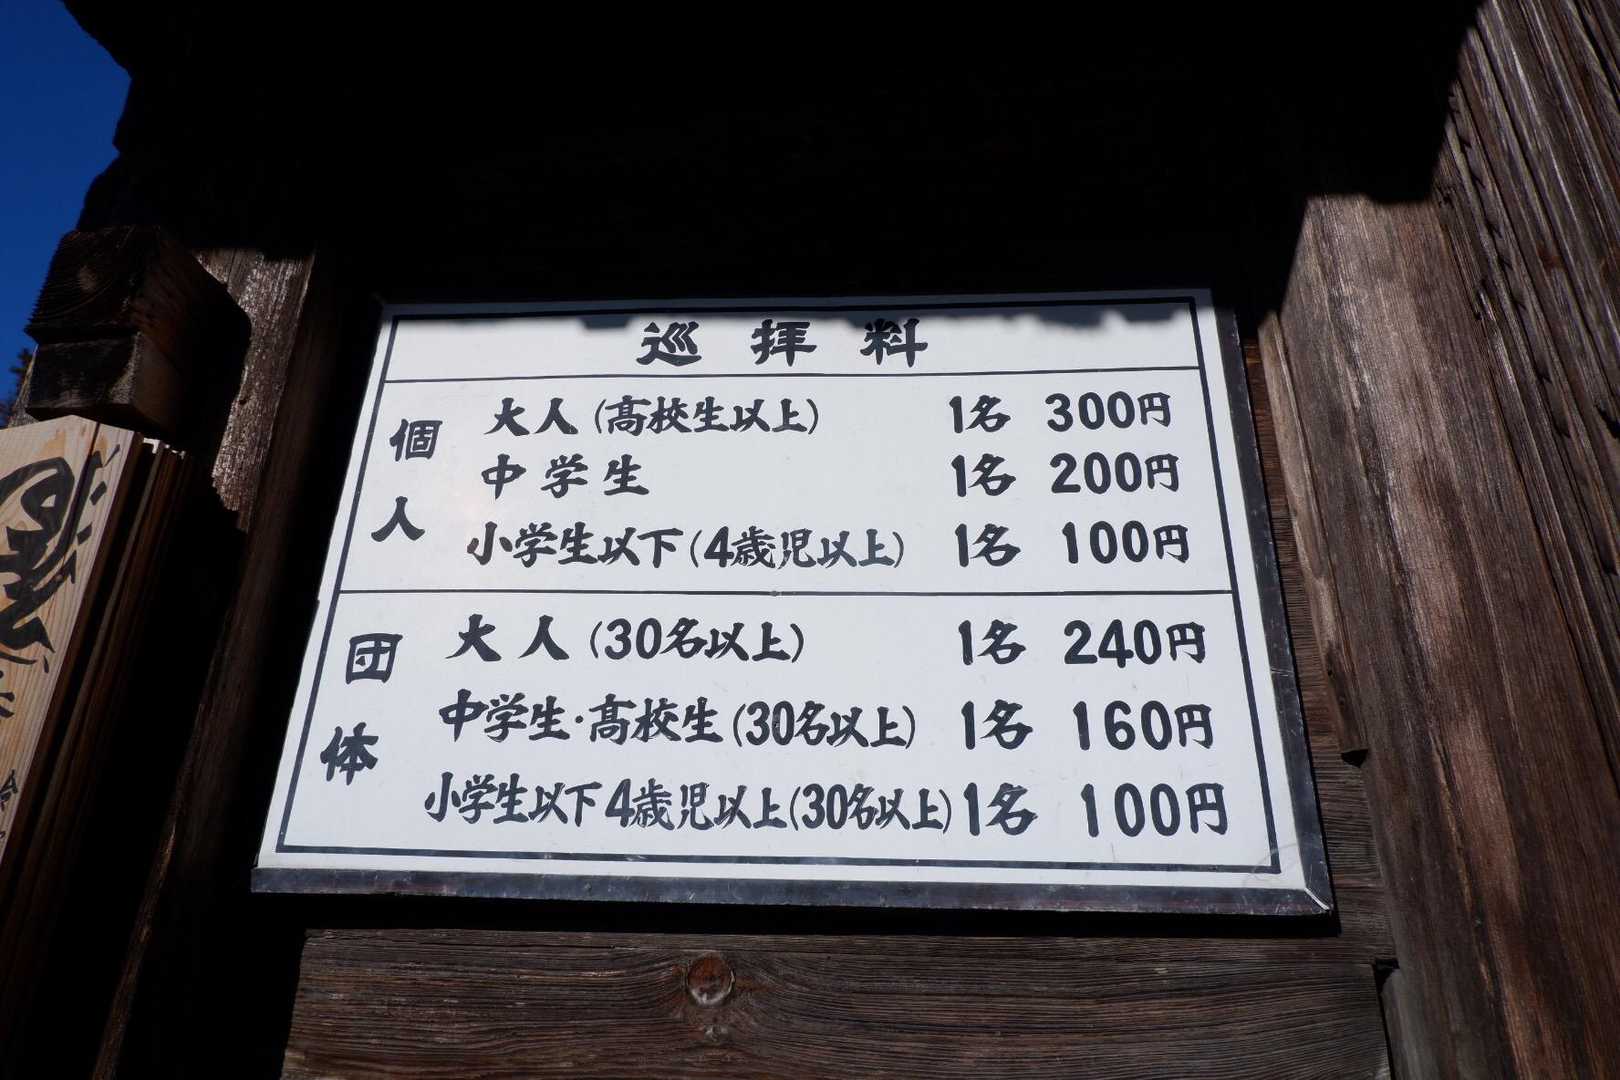 巡拝料
個人
大人(高校生以上) 1名 300円
中学生 1名 200円
小学生以下(4歳児以上) 1名 100円
団体
大人(30名以上) 1名 240円
中学生・高校生(30名以上) 1名 160円
小学生以下4歳児以上(30名以上) 1名 100円